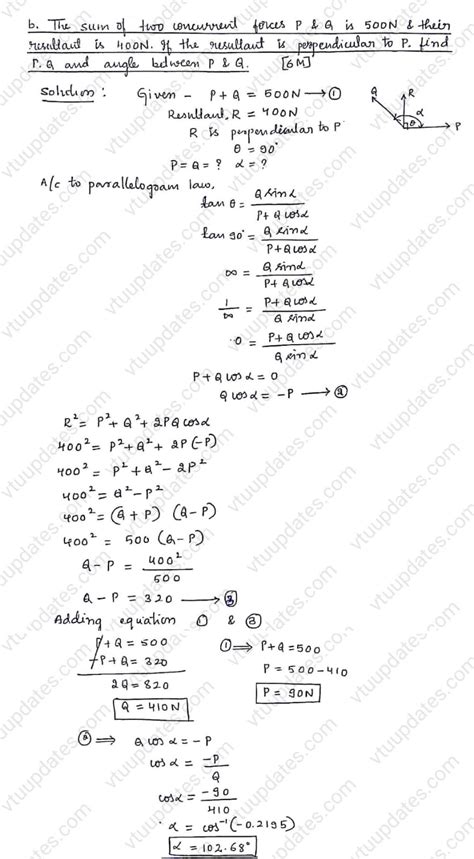 b. The sum of two concurrent forces P & Q is 500N & their
resultant is 400N. If the resultant is perpendicular to P. find
P, Q and angle between P & Q. [6M]
Solution : Given - P + Q = 500N → ①
Resultant, R = 400N
R is perpendicular to P
θ = 90°
P = Q = ? α = ?
Q R α θ P
A/c to parallelogram law,
tan θ = Q sinα / P + Q cosα
tan 90° = Q sinα / P + Q cosα
∞ = Q sinα / P + Q cosα
1/∞ = P + Q cosα / Q sinα
0 = P + Q cosα / Q sinα
P + Q cosα = 0
Q cosα = -P → ②
R² = P² + Q² + 2PQ cosα
400² = P² + Q² + 2P(-P)
400² = P² + Q² - 2P²
400² = Q² - P²
400² = (Q + P) (Q - P)
400² = 500 (Q - P)
Q - P = 400² / 500
Q - P = 320 → ③
Adding equation ① & ③
P + Q = 500
-P + Q = 320
2Q = 820
Q = 410N
① ⟹ P + Q = 500
P = 500 - 410
P = 90N
② ⟹ Q cos α = -P
cos α = -P / Q
cosα = -90 / 410
α = cos⁻¹ (-0.2195)
α = 102.68°
vtuupdates.com